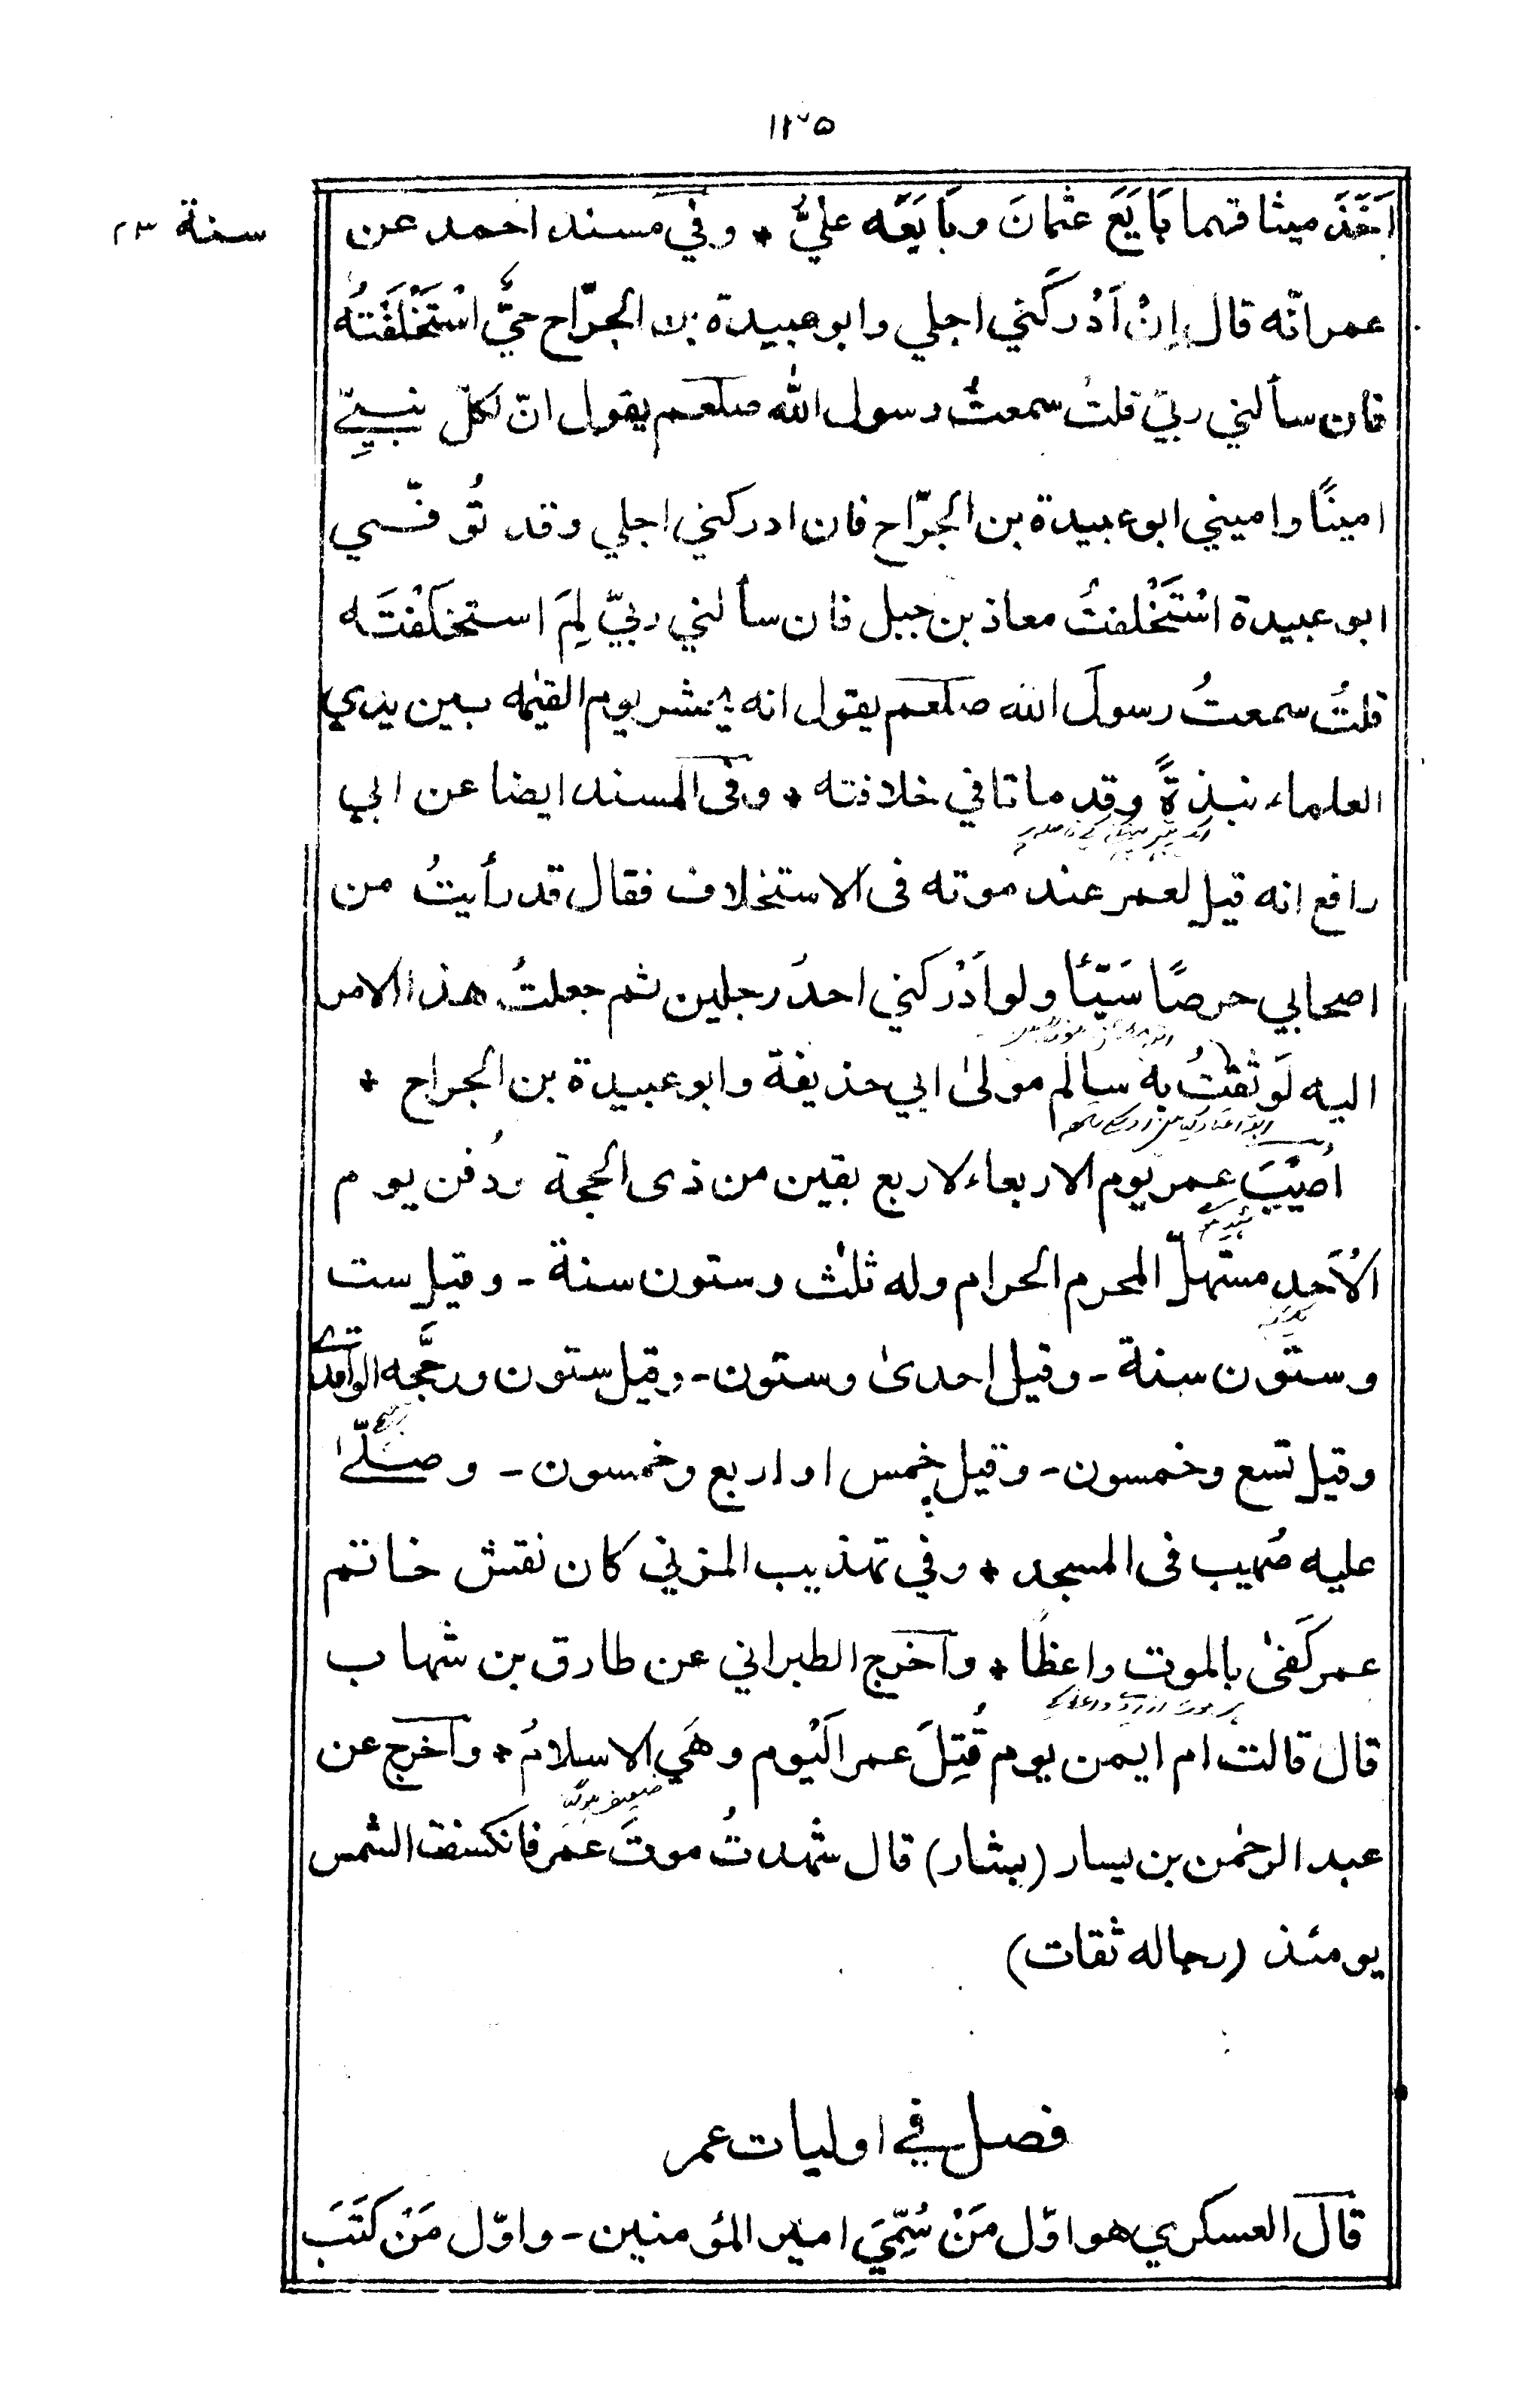 ١٣٥
سنة ٢٣
اَخَذَ ميثاقهما بَايَعَ عثمانَ وبَايَعَه عليٌّ * وفي مسند احمد عن
عمر انّه قال اِنْ اَدْرَكَني اجلي وابوعبيدة بن الجرّاح حيٌّ اسْتَخْلَفْتُه
فان سألني ربيّ قلتُ سمعتُ رسول الله صلعم يقول انّ لكلّ نبيّ
امينًا واميني ابوعبيدة بن الجرّاح فان ادركني اجلي وقد تُوفّي
ابوعبيدة اسْتَخْلفتُ معاذ بن جبل فان سألني ربيّ لِمَ استخلَفْتَه
قلتُ سمعتُ رسولَ الله صلعم يقول انه يُحشر يوم القيٰمه بين يدي
العلماء نبذةً وقد ماتا في خلافته * وفى المسند ايضا عن ابي
رافع انه قيل لعمر عند موته فى الاستخلاف فقال قد رأيتُ من
اصحابي حرصًا سَيّئًا ولو اَدْركني احدُ رجلين ثم جعلتُ هذا الامر
اليه لَوَثقْتُ به سالم مولىٰ ابي حذيفة وابوعبيدة بن الجراح *
اُصيْبَ عمر يوم الاربعاء لاربع بقين من ذى الحجة ودُفن يوم
الاَحد مستهلّ المحرم الحرام وله ثلٰث وستون سنة - وقيل ست
وستّون سنة - وقيل احدىٰ وستون - وقيل ستون ورجَّحه الواقدي
وقيل تسع وخمسون - وقيل خمس او اربع وخمسون - وصلّىٰ
عليه صُهيب فى المسجد * وفي تهذيب المزني كان نقش خاتم
عمر كَفىٰ بالموت واعظًا * واَخرج الطبراني عن طارق بن شهاب
قال قالت ام ايمن يوم قُتِلَ عمر اَلْيوم وهَي الاسلامُ * واَخرج عن
عبد الرحمٰن بن يسار (بشار) قال شهدتُ موتَ عمَر فانكسفت الشمس
يومئذ (رجاله ثقات)
فصل في اوليات عمر
قال العسكري هو اوّل مَنْ سُمِّيَ امير المؤمنين - واوّل مَنْ كتَبَ